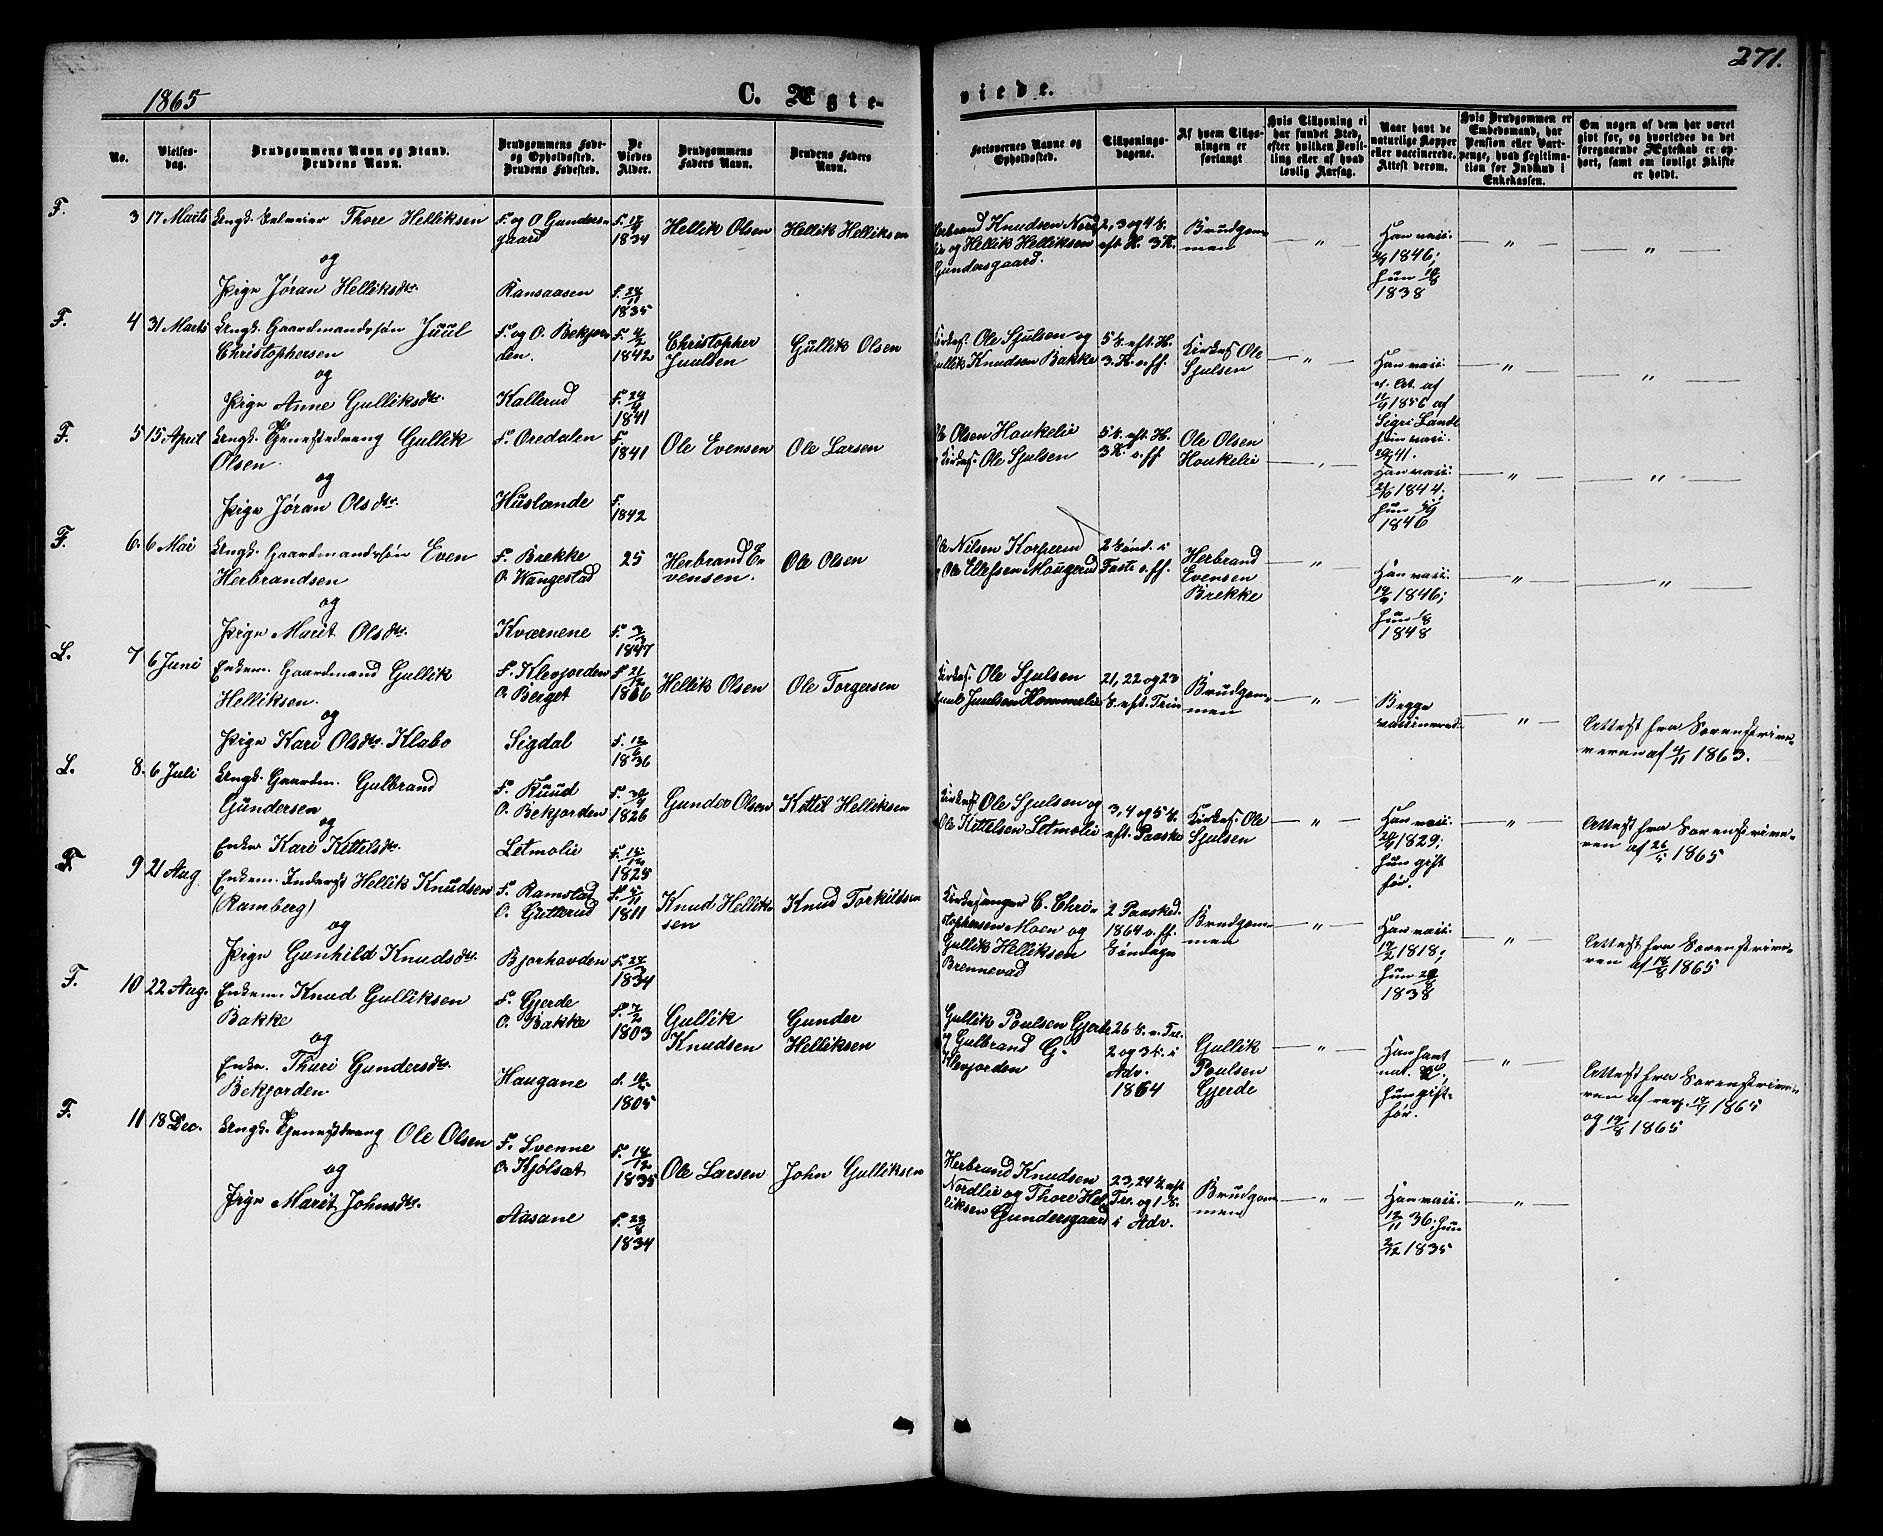 271.
1865
C. Ægte-
viede.
No.
Vielses-
dag.
Brudgommens Navn og Stand.
Brudens Navn.
Brudgommens Føde-
og Opholdssted.
Brudens Fødested.
De
Viedes
Alder.
Brudgommens
Faders Navn.
Brudens Faders
Navn.
Forlovernes Navne og
Opholdssted.
Tillysnings-
dagene.
Af hvem Tillys-
ningen er
forlangt
Hvis Tillysning ei
har fundet Sted,
efter hvilken Bevil-
ling eller af hvad
lovlig Aarsag.
Naar havt de
naturlige Kopper
eller vaccinerede.
Attest derom.
Hvis Brudgommen er
Embedsmand, har
Pension eller Vart-
penge, hvad Legitima-
tion for Indskud i
Enkekassen.
Om nogen af dem har været
givt før, og hvorledes da det
foregaaende Ægteskab er op-
hørt, samt om lovligt Skifte
er holdt.
F.
3
17 Marts
Ungk. Thore Helliksen
og
Pige Jøran Helliksdtr.
F. og O. Gunders-
gaard
Ransaasen
F. 17/9
1834
F. 24/11
1835
Hellik Olsen
Hellik Helliksen
Herbrand Knudsen Nord
lie og Hellik Helliksen
Gundersgaard.
2, 3 og 4 S.
eft. H. 3 K.
Brudgom-
men
Han vacc.
1846;
hun
1838
F.
4
31 Marts
Ungk. Gaardmandssøn Juul
Christophersen
og
Pige Anne Gulliksdtr.
F. og O. Bekjor-
den.
Kallerud
F. 4/2
1842
F.
1841
Christopher
Juulsen
Gullik Olsen
Kirkes. Ole Sjulsen og
Gullik Knudsen Bakke
5 S. eft. H.
3 K. o. ff.
Kirkes. Ole
Sjulsen
Han vacc.
af
1856 af
Sigri Lande
hun vacc.
41.
F.
5
15 April
Ungk. Tjenestedreng Gullik
Olsen
og
Pige Jøran Olsdtr.
F. Oredalen
Huslænde
F.
1841
F.
1842
Ole Evensen
Ole Larsen
Ole Olsen Houkelie
og Kirkes. Ole Sjulsen
5 S. eft. H.
3 K. o. ff
Ole Olsen
Houkelie
Han vacc.
1844;
hun
1846
F.
6.
6 Mai
Ungk. Gaardmandssøn Even
Herbrandsen
og
Pige Marit Olsdtr.
F. Brekke
O. Kangestad
Kværnene
25
F.
1847
Herbrand E-
vensen.
Ole Olsen
Ole Nilsen Korperud
og Ole Ellefsen Mougerud
2 Sønd. i
Faste o. ff.
Herbrand
Evensen
Brekke
Han vacc.
1846;
hun
1848
L.
7
6 Juni
Enkem. Gaardmand Gullik
Helliksen.
og
Pige Kari Olsdtr. Klabo
F. Klevjorden
O. Berget
Sigdal
F. 21/12
1806
F. 12/6
1836
Hellik Olsen
Ole Torgersen
Kirkes. Ole Sjulsen
Juul Juulsen Hommelie
21, 22 og 23
S. eft. Trin
Brudgom-
men
Begge
vaccinerede
Attest fra Sorenskrive-
veren af 4/11 1863.
L.
8.
6 Juli
Ungk. Gaardm. Gulbrand
Gundersen
og
Enke Kari Kittelsdtr.
F. Ruud
O. Bekjorden
Letmolie
F.
1826
F. 15/12
1825
Gunder Olsen
Kittil Helliksen
Kirkes. Ole Sjulsen og
Ole Kittelsen Letmolie
3, 4 og 5 S.
eft. Paaske
Kirkes. Ole
Sjulsen
Han vacc.
1829;
hun gift
før.
Attest fra Sorenskrive-
ren af 26/5 1865
F.
9
21 Aug.
Enkem. Inderst Hellik Knudsen
(Ramberg)
og
Pige Gunhild Knudsdtr.
F. Ramstad
O. Gutterud
Bjorhovden
F.
1811
F.
1834
Knud Hellik-
sen
Knud Torkildsen
Kirkesanger C. Chri-
stophersen Moen og
Gullik Helliksen
Brennevad
2 Paasked.
1864 o. ff.
Søndage
Brudgom-
men
Han vacc.
1818;
hun
1838
Attest fra Sorenskrive-
ren af 1865
F.
10
22 Aug.
Enkem. Knud Gulliksen
Bakke
og
Enke. Thuri Gundersdtr.
Bekjorden
F. Gjerde
O. Bakke
Haugane
F. 7/2
1803
1805
Gullik
Knudsen
Gunder
Helliksen
Gullik Poulsen Gjerde
og Gulbrand G.
Klevjorden
26 S. e. Tre.
2 og 3 S. i
Adv.
1864
Gullik
Poulsen
Gjerde
Han havt
nat. K.;
hun gift
før.
Attest fra Sorenskrive-
ren af resp. 1865
og 1865
F.
11
18 Dec.
Ungk. Tjenestdreng Ole Olsen
og
Pige Marit Johnsdtr.
F. Svenne
O. Kjølsæt
Aasane
F. 14/12
1835
F. 23/8
1834
Ole Larsen
John Gulliksen
Herbrand Knudsen
Nordlie og Thore Hel-
liksen Gundersgaard
23, 24 S. eft
Tre. og 1 S.
i Adv.
Brudgom-
men
Han vacc.
12/11 36; hun
2/12 1835